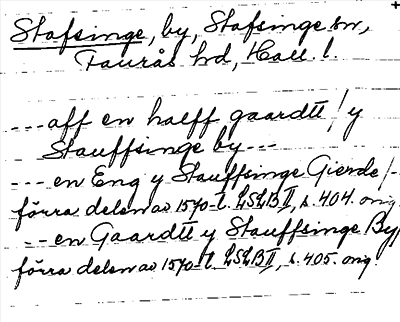 Stafsinge, by, Stafsinge sn,
Faurås hd, Hall. l.
---aff en halff gaardtt / y
Stauffsinge by---
---en Eng y Stauffsinge Gierde/--
förra delen av 1570-t. LSLB II, s. 404. orig.
---en Gaardtt y Stauffsinge By/
förra delen av 1570-t. LSLB II, s. 405. orig.